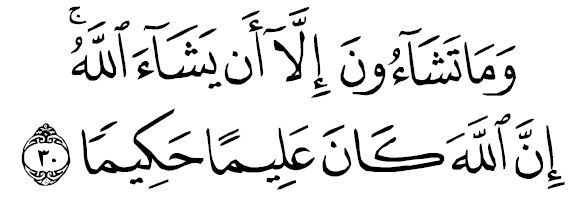 وَمَا تَشَآءُونَ إِلَّآ أَن يَشَآءَ ٱللَّهُ ۚ
إِنَّ ٱللَّهَ كَانَ عَلِيمًا حَكِيمًا ٣٠